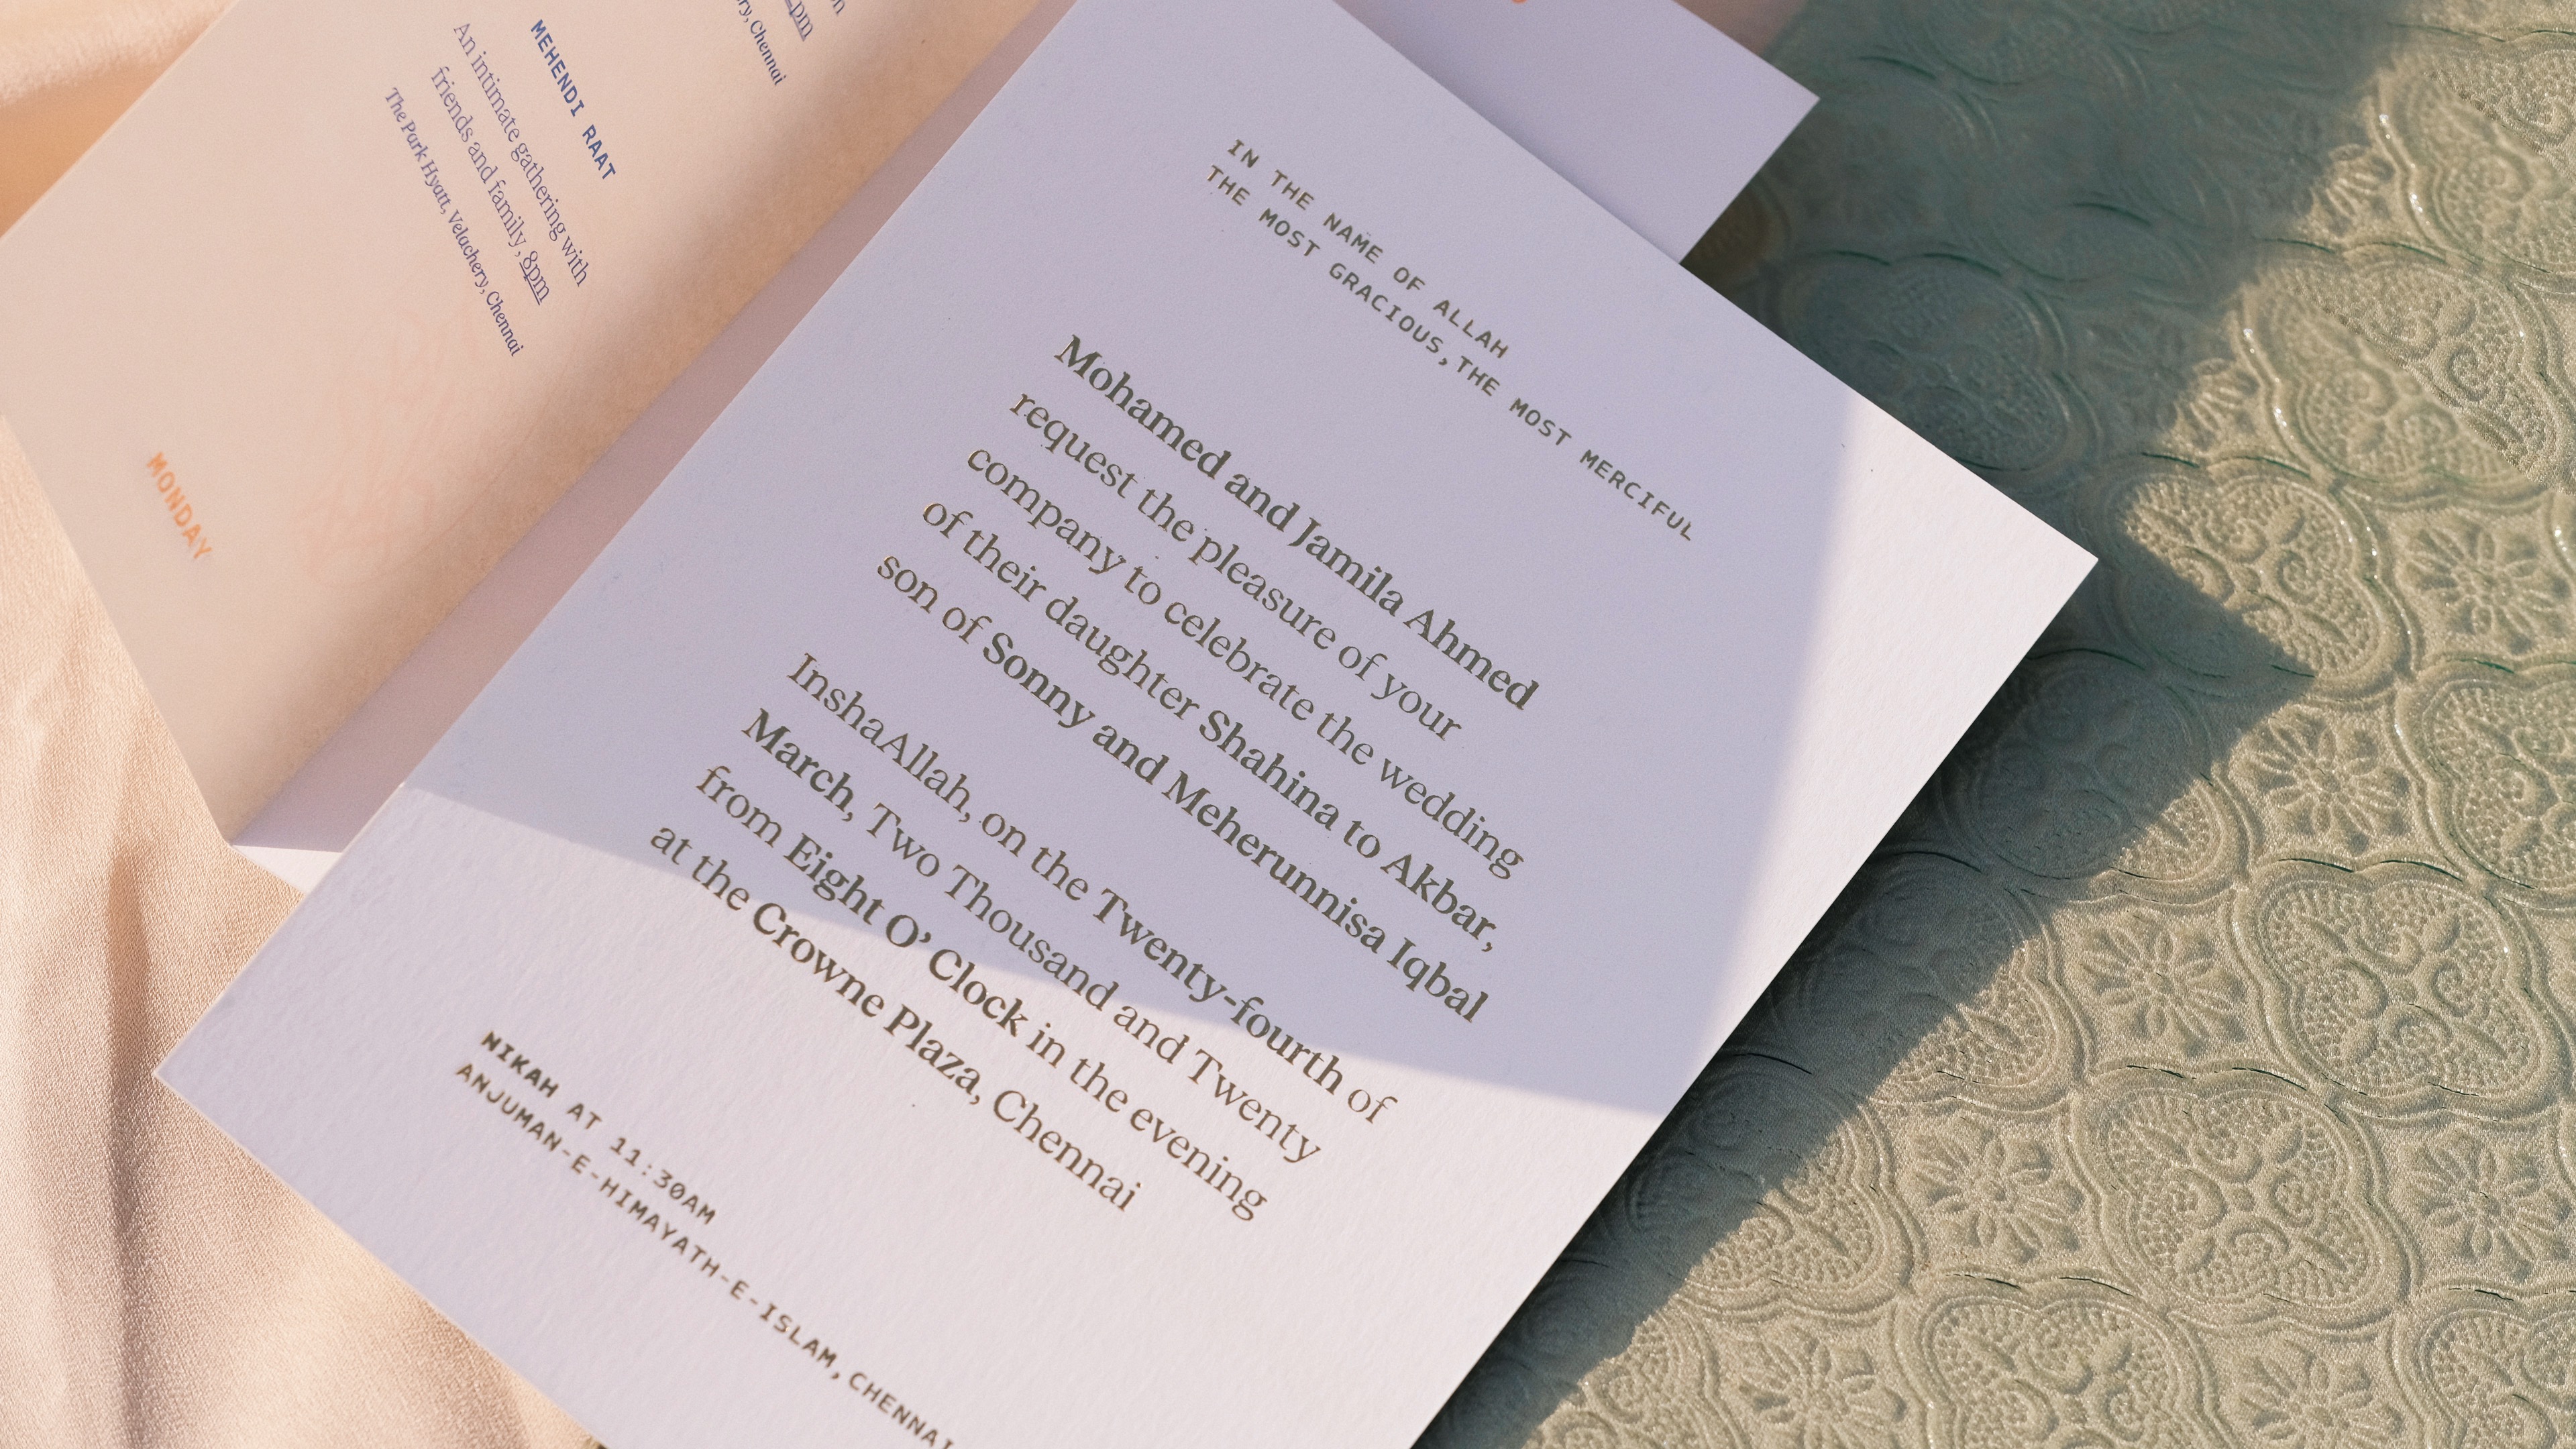 IN THE NAME OF ALLAH
THE MOST GRACIOUS, THE MOST MERCIFUL
Mohamed and Jamila Ahmed
request the pleasure of your
company to celebrate the wedding
of their daughter Shahina to Akbar,
son of Sonny and Meherunnisa Iqbal
InshaAllah, on the Twenty-fourth of
March, Two Thousand and Twenty
from Eight O' Clock in the evening
at the Crowne Plaza, Chennai
NIKAH AT 11:30AM
ANJUMAN-E-HIMAYATH-E-ISLAM, CHENNAI
pm
Chennai
MEHENDI RAAT
An intimate gathering with
friends and family, 8pm
The Park Hyatt, Velachery, Chennai
MONDAY